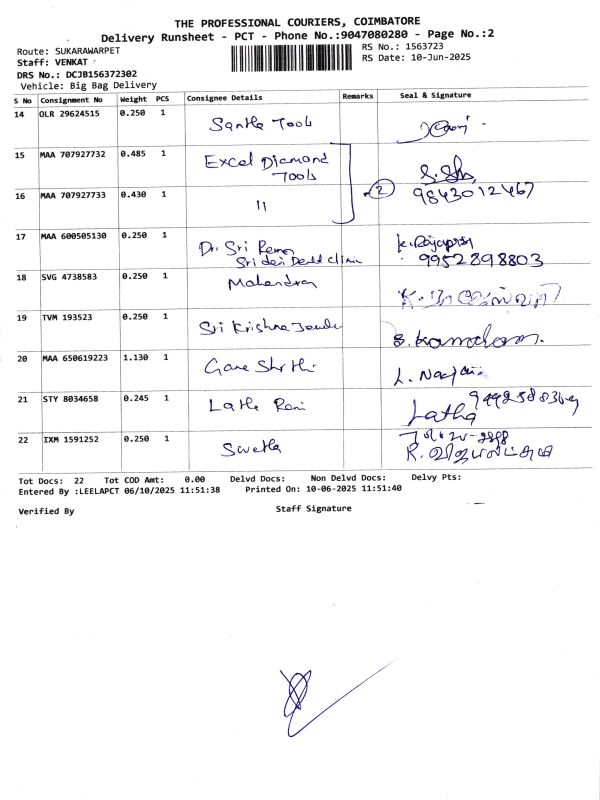 THE PROFESSIONAL COURIERS, COIMBATORE
Delivery Runsheet - PCT - Phone No.:9047080280 - Page No.:2
Route: SUKARAWARPET
RS No.: 1563723
Staff: VENKAT
RS Date: 10-Jun-2025
DRS No.: DCJB156372302
Vehicle: Big Bag Delivery
S No Consignment No Weight PCS Consignee Details Remarks Seal & Signature
14 OLR 29624515 0.250 1 Santha Tools
15 MAA 707927732 0.485 1 Excel Diamond
Tools
16 MAA 707927733 0.430 1 11 2 9843012467
17 MAA 600505130 0.250 1 Dr. Sri
Sri devi Dental Clinic 9952898803
18 SVG 4738583 0.250 1 Mahendran
19 TVM 193523 0.250 1 Sri Krishna
20 MAA 650619223 1.130 1
21 STY 8034658 0.245 1 Latha Rani Latha
22 IXM 1591252 0.250 1 Swetha
Tot Docs: 22 Tot COD Amt: 0.00 Delvd Docs: Non Delvd Docs: Delvy Pts:
Entered By :LEELAPCT 06/10/2025 11:51:38 Printed On: 10-06-2025 11:51:40
Verified By Staff Signature